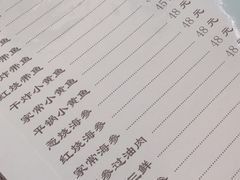 带鱼
炸带鱼
红烧带鱼
干炸小黄鱼
家常小黄鱼
平锅小黄鱼
葱烧海参
红烧海参
家常海参
参过油肉
三鲜
45元
48元
48元
48元
48元
48